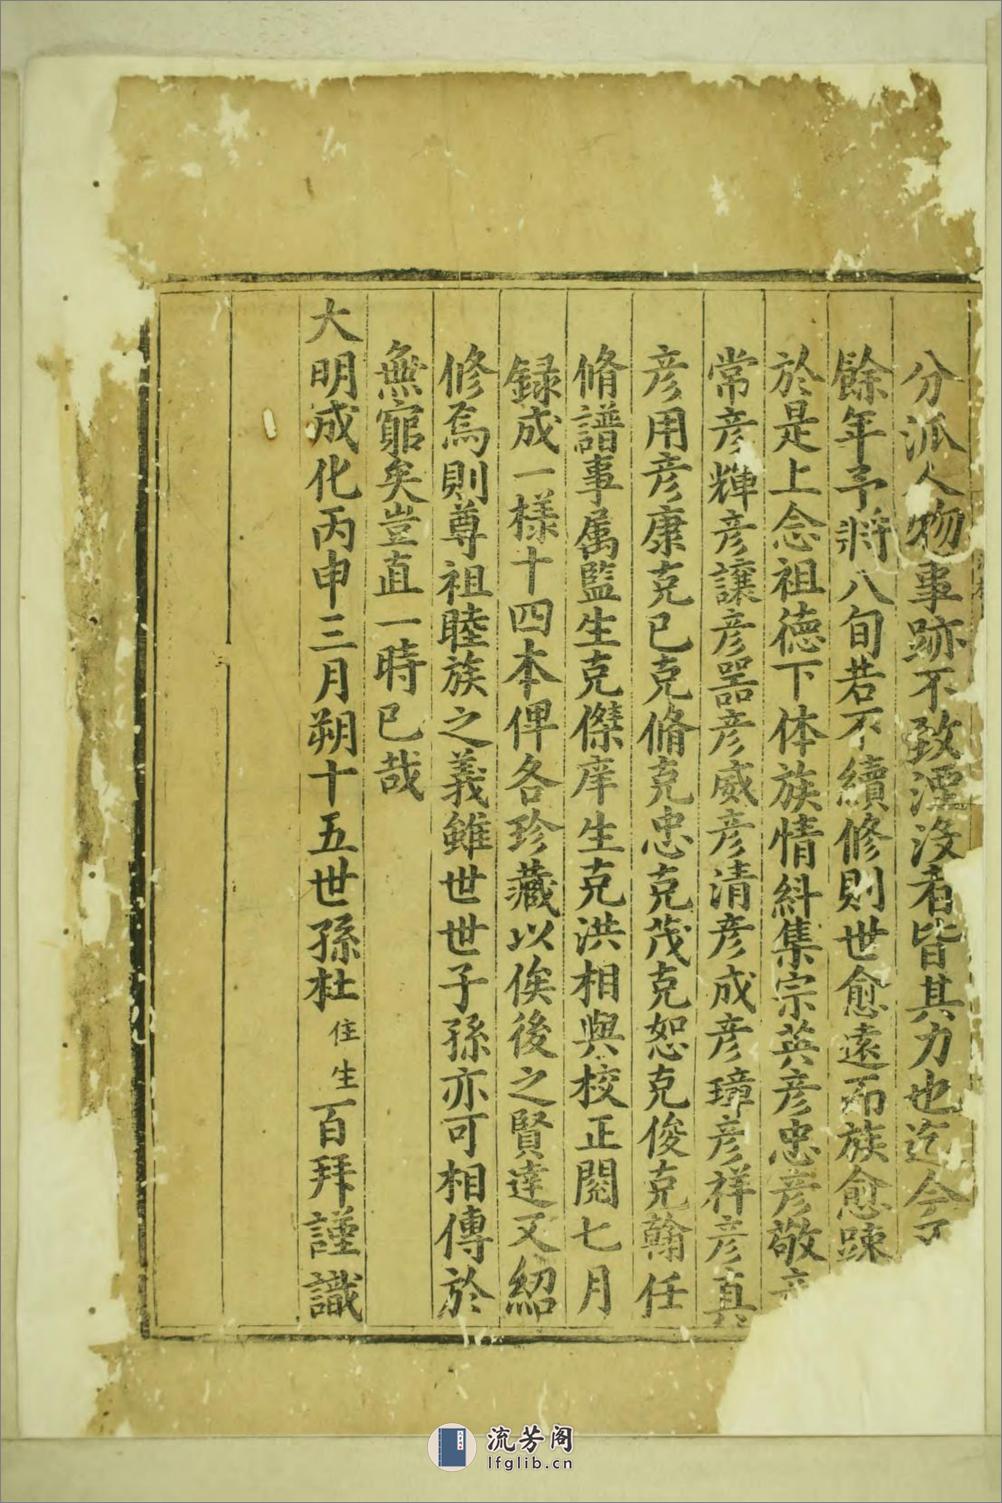 分派人物事跡不致湮没者皆其力也迄今
餘年予將八旬若不續修則世愈遠而族愈踈
於是上念祖德下体族情糾集宗英彦忠彦敬
常彦輝彦讓彦器彦威彦清彦成彦璋彦祥彦真
彦用彦康克已克脩克忠克茂克恕克俊克翰任
脩譜事属監生克傑庠生克洪相與校正閱七月
録成一樣十四本俾各珍藏以俟後之賢達又紹
修焉則尊祖睦族之義雖世世子孫亦可相傳於
無窮矣豈直一時已哉
大明成化丙申三月朔十五世孫杜住生百拜謹識
流芳阁
lfglib.cn